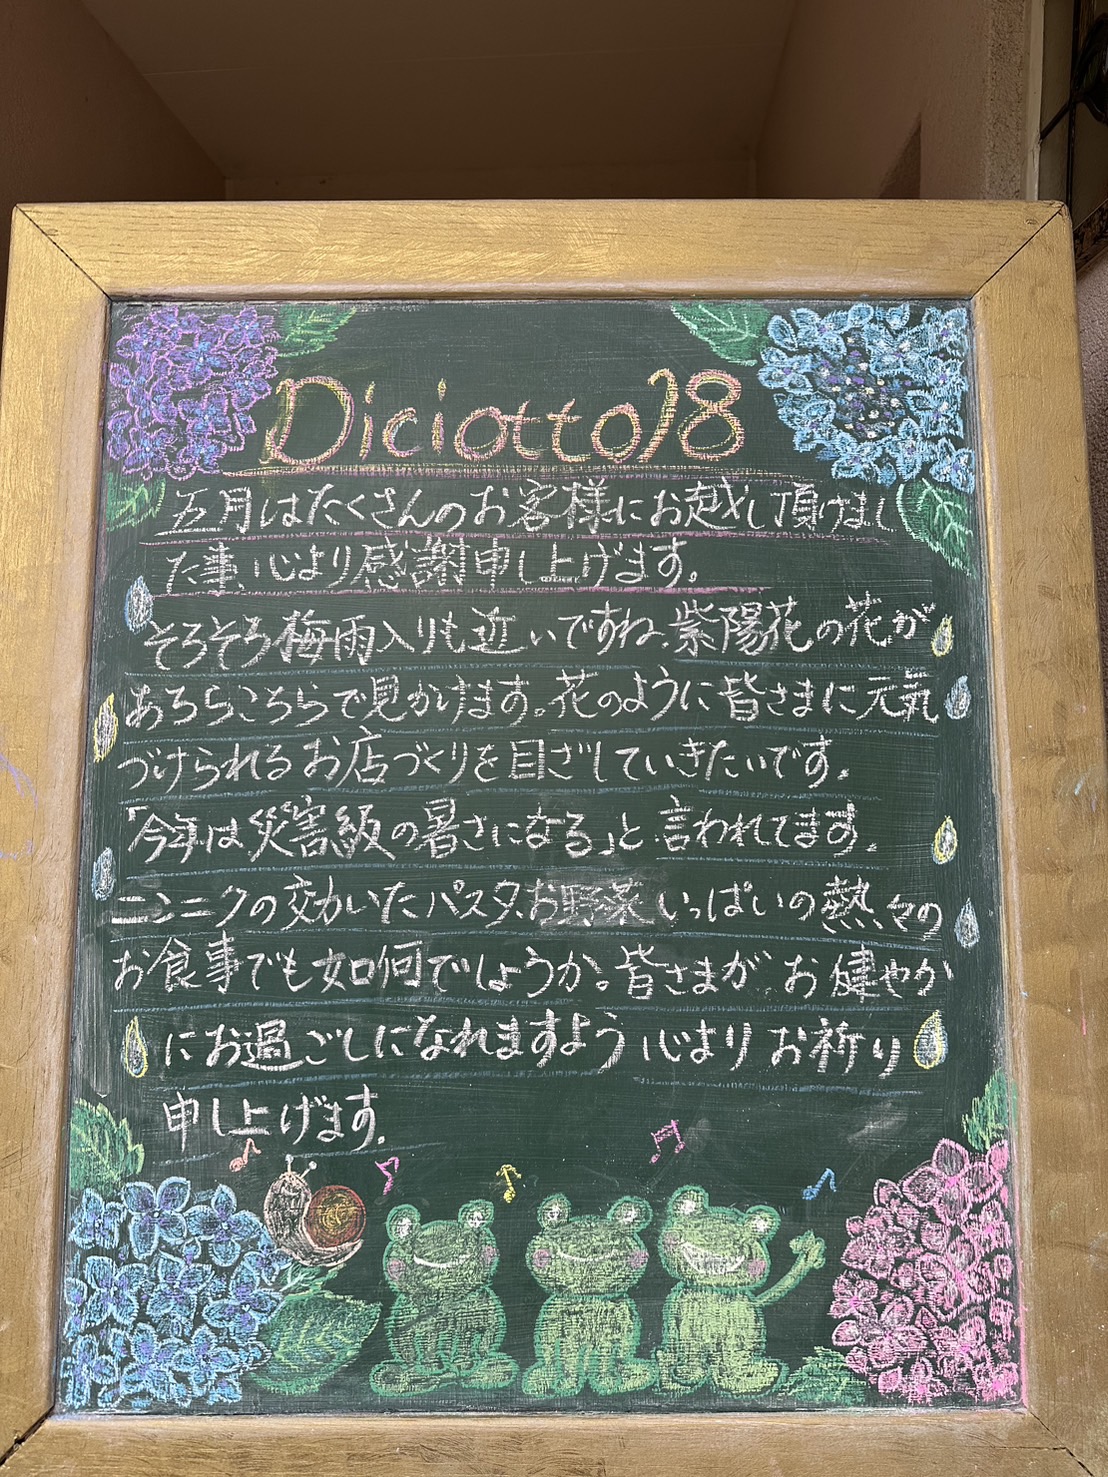 Diciotto18
五月はたくさんのお客様にお越し頂けまし
た事、心より感謝申し上げます。
そろそろ梅雨入りも近いですね、紫陽花の花が
あちらこちらで見かけます。花のように皆さまに元気
づけられるお店づくりを目ざしていきたいです。
「今年は災害級の暑さになる」と言われてます。
ニンニクの効いたパスタ、お野菜いっぱいの熱々の
お食事でも如何でしょうか。皆さまが、お健やか
にお過ごしになれますよう心よりお祈り
申し上げます。